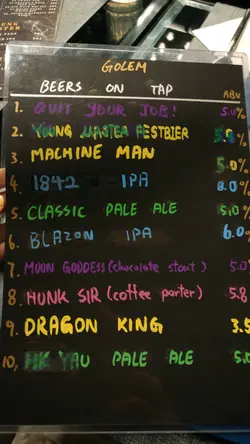 GOLEM
BEERS ON TAP ABV
1. QUIT YOUR JOB! 5.0%
2. YOUNG MASTER FESTBIER
3. MACHINE MAN 5.0%
4. 1842 IPA 8.0%
5. CLASSIC PALE ALE 5.0%
6. BLAZON IPA 6.0
7. MOON GODDESS (chocolate stout) 5.0
8. HUNK SIR (coffee porter) 5.8
9. DRAGON KING 3.5
10, YAU PALE ALE